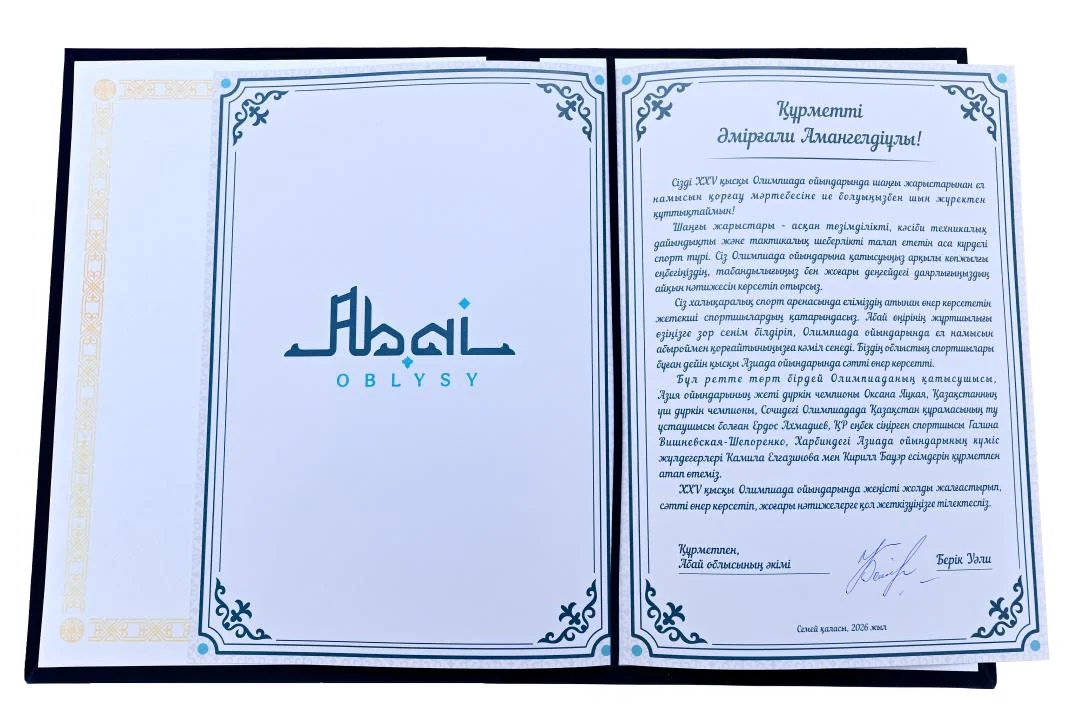 Abai
OBLYSY
Құрметті
Әмірғали Амангелдіұлы!
Сізді XXV қысқы Олимпиада ойындарында шаңғы жарыстарынан ел
намысын қорғау мәртебесіне ие болуыңызбен шын жүректен
құттықтаймын!
Шаңғы жарыстары - асқан төзімділікті, кәсіби техникалық
дайындықты және тактикалық шеберлікті талап ететін аса күрделі
спорт түрі. Сіз Олимпиада ойындарына қатысуыңыз арқылы көпжылғы
еңбегіңіздің, табандылығыңыз бен жоғары деңгейдегі даярлығыңыздың
айқын нәтижесін көрсетіп отырсыз.
Сіз халықаралық спорт аренасында еліміздің атынан өнер көрсететін
жетекші спортшылардың қатарындасыз. Абай өңірінің жұртшылығы
өзіңізге зор сенім білдіріп, Олимпиада ойындарында ел намысын
абыроймен қорғайтыныңызға кәміл сенеді. Біздің облыстың спортшылары
бұған дейін қысқы Азиада ойындарында сәтті өнер көрсетті.
Бұл ретте төрт бірдей Олимпиаданың қатысушысы,
Азия ойындарының жеті дүркін чемпионы Оксана Яцкая, Қазақстанның
үш дүркін чемпионы, Сочидегі Олимпиадада Қазақстан құрамасының ту
ұстаушысы болған Ердос Ахмадиев, ҚР еңбек сіңірген спортшысы Галина
Вишневская-Шепоренко, Харбиндегі Азиада ойындарының күміс
жүлдегерлері Камила Елгазинова мен Кирилл Бауэр есімдерін құрметпен
атап өтеміз.
XXV қысқы Олимпиада ойындарында жеңісті жолды жалғастырып,
сәтті өнер көрсетіп, жоғары нәтижелерге қол жеткізуіңізге тілектеспіз.
Құрметпен,
Абай облысының әкімі
Берік Уәли
Семей қаласы, 2026 жыл